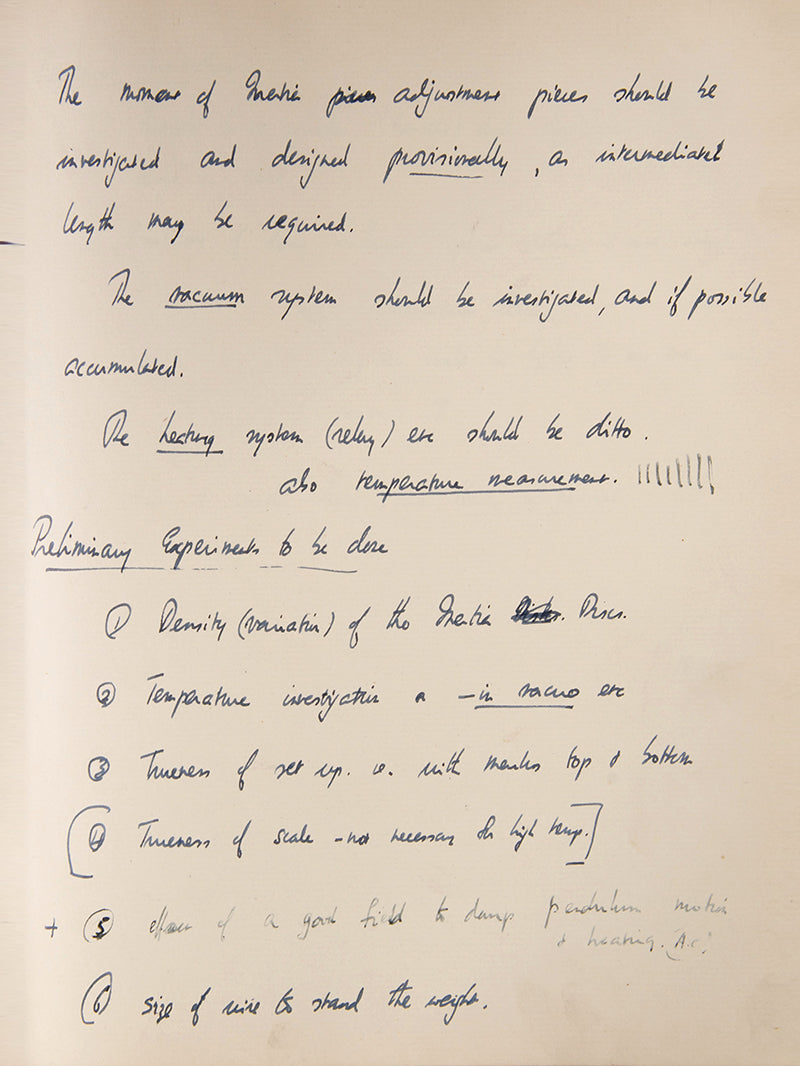 The moment of Inertia pieces adjustment pieces should be
investigated and designed provisionally, as intermediate
length may be required.
The vacuum system should be investigated, and if possible
accumulated.
The heating system (relay) etc should be ditto.
also temperature measurement.
Preliminary Experiments to be done
① Density (variation) of the Inertia Discs.
② Temperature investigation – in vacuo etc
③ Trueness of set up. i.e. with marks top & bottom
[④ Trueness of scale – not necessary for high temp.]
+ ⑤ effect of a good field to damp pendulum motion
& heating. (A.C)
⑥ size of wire to stand the weight.